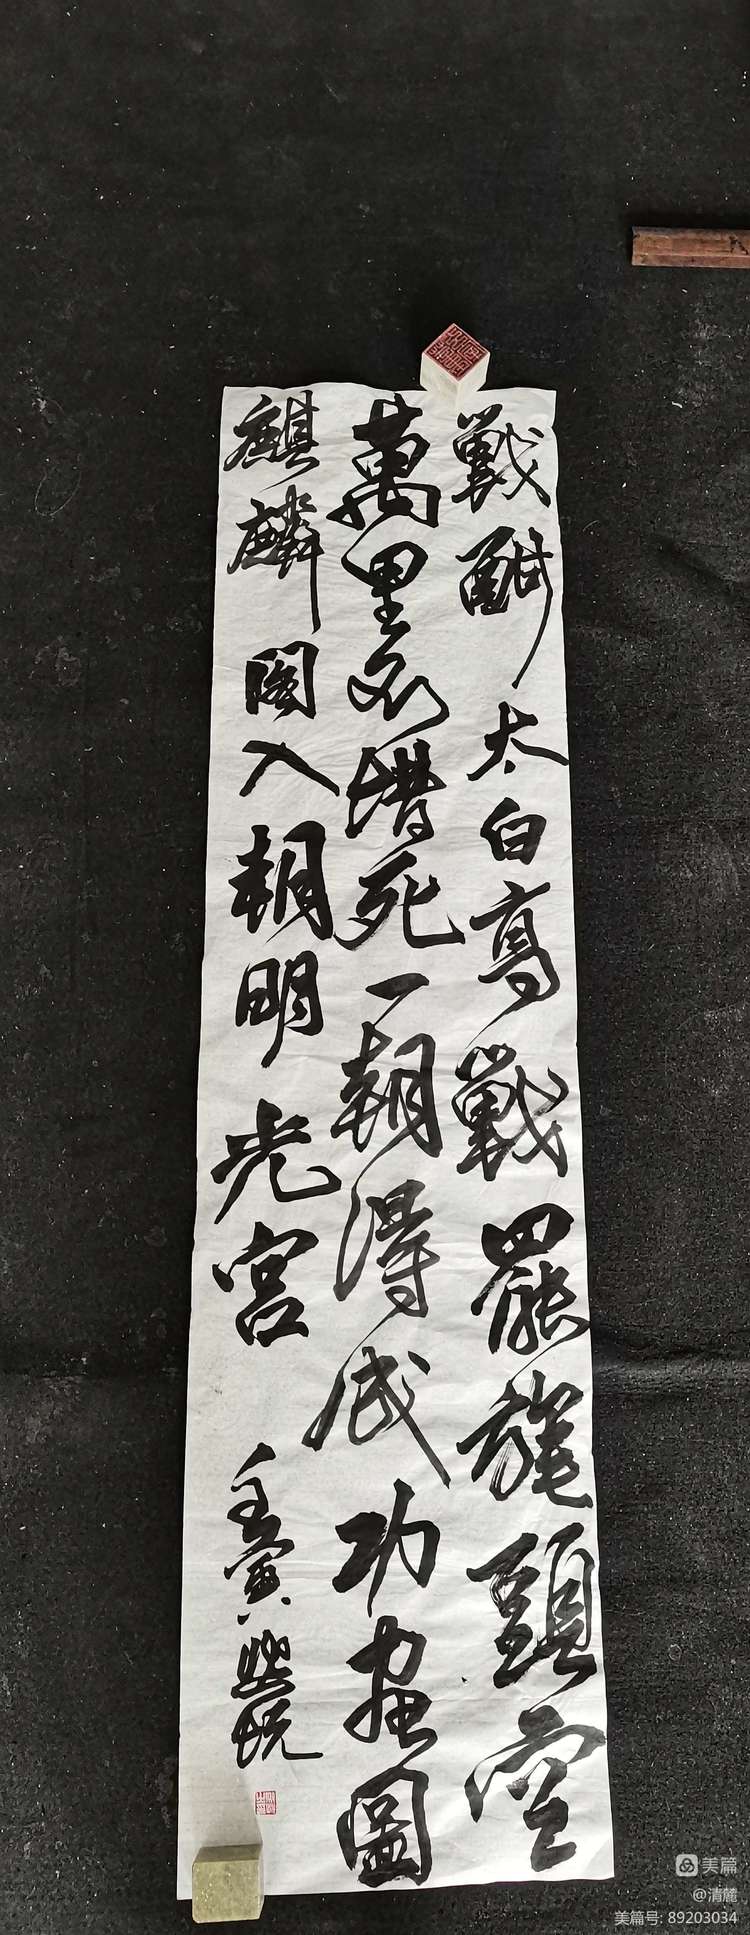 戰酣太白高戰罷旄頭空
萬里不惜死一朝得成功畫圖
麒麟閣入朝明光宮
壬寅
美篇
@清麓
美篇号: 89203034